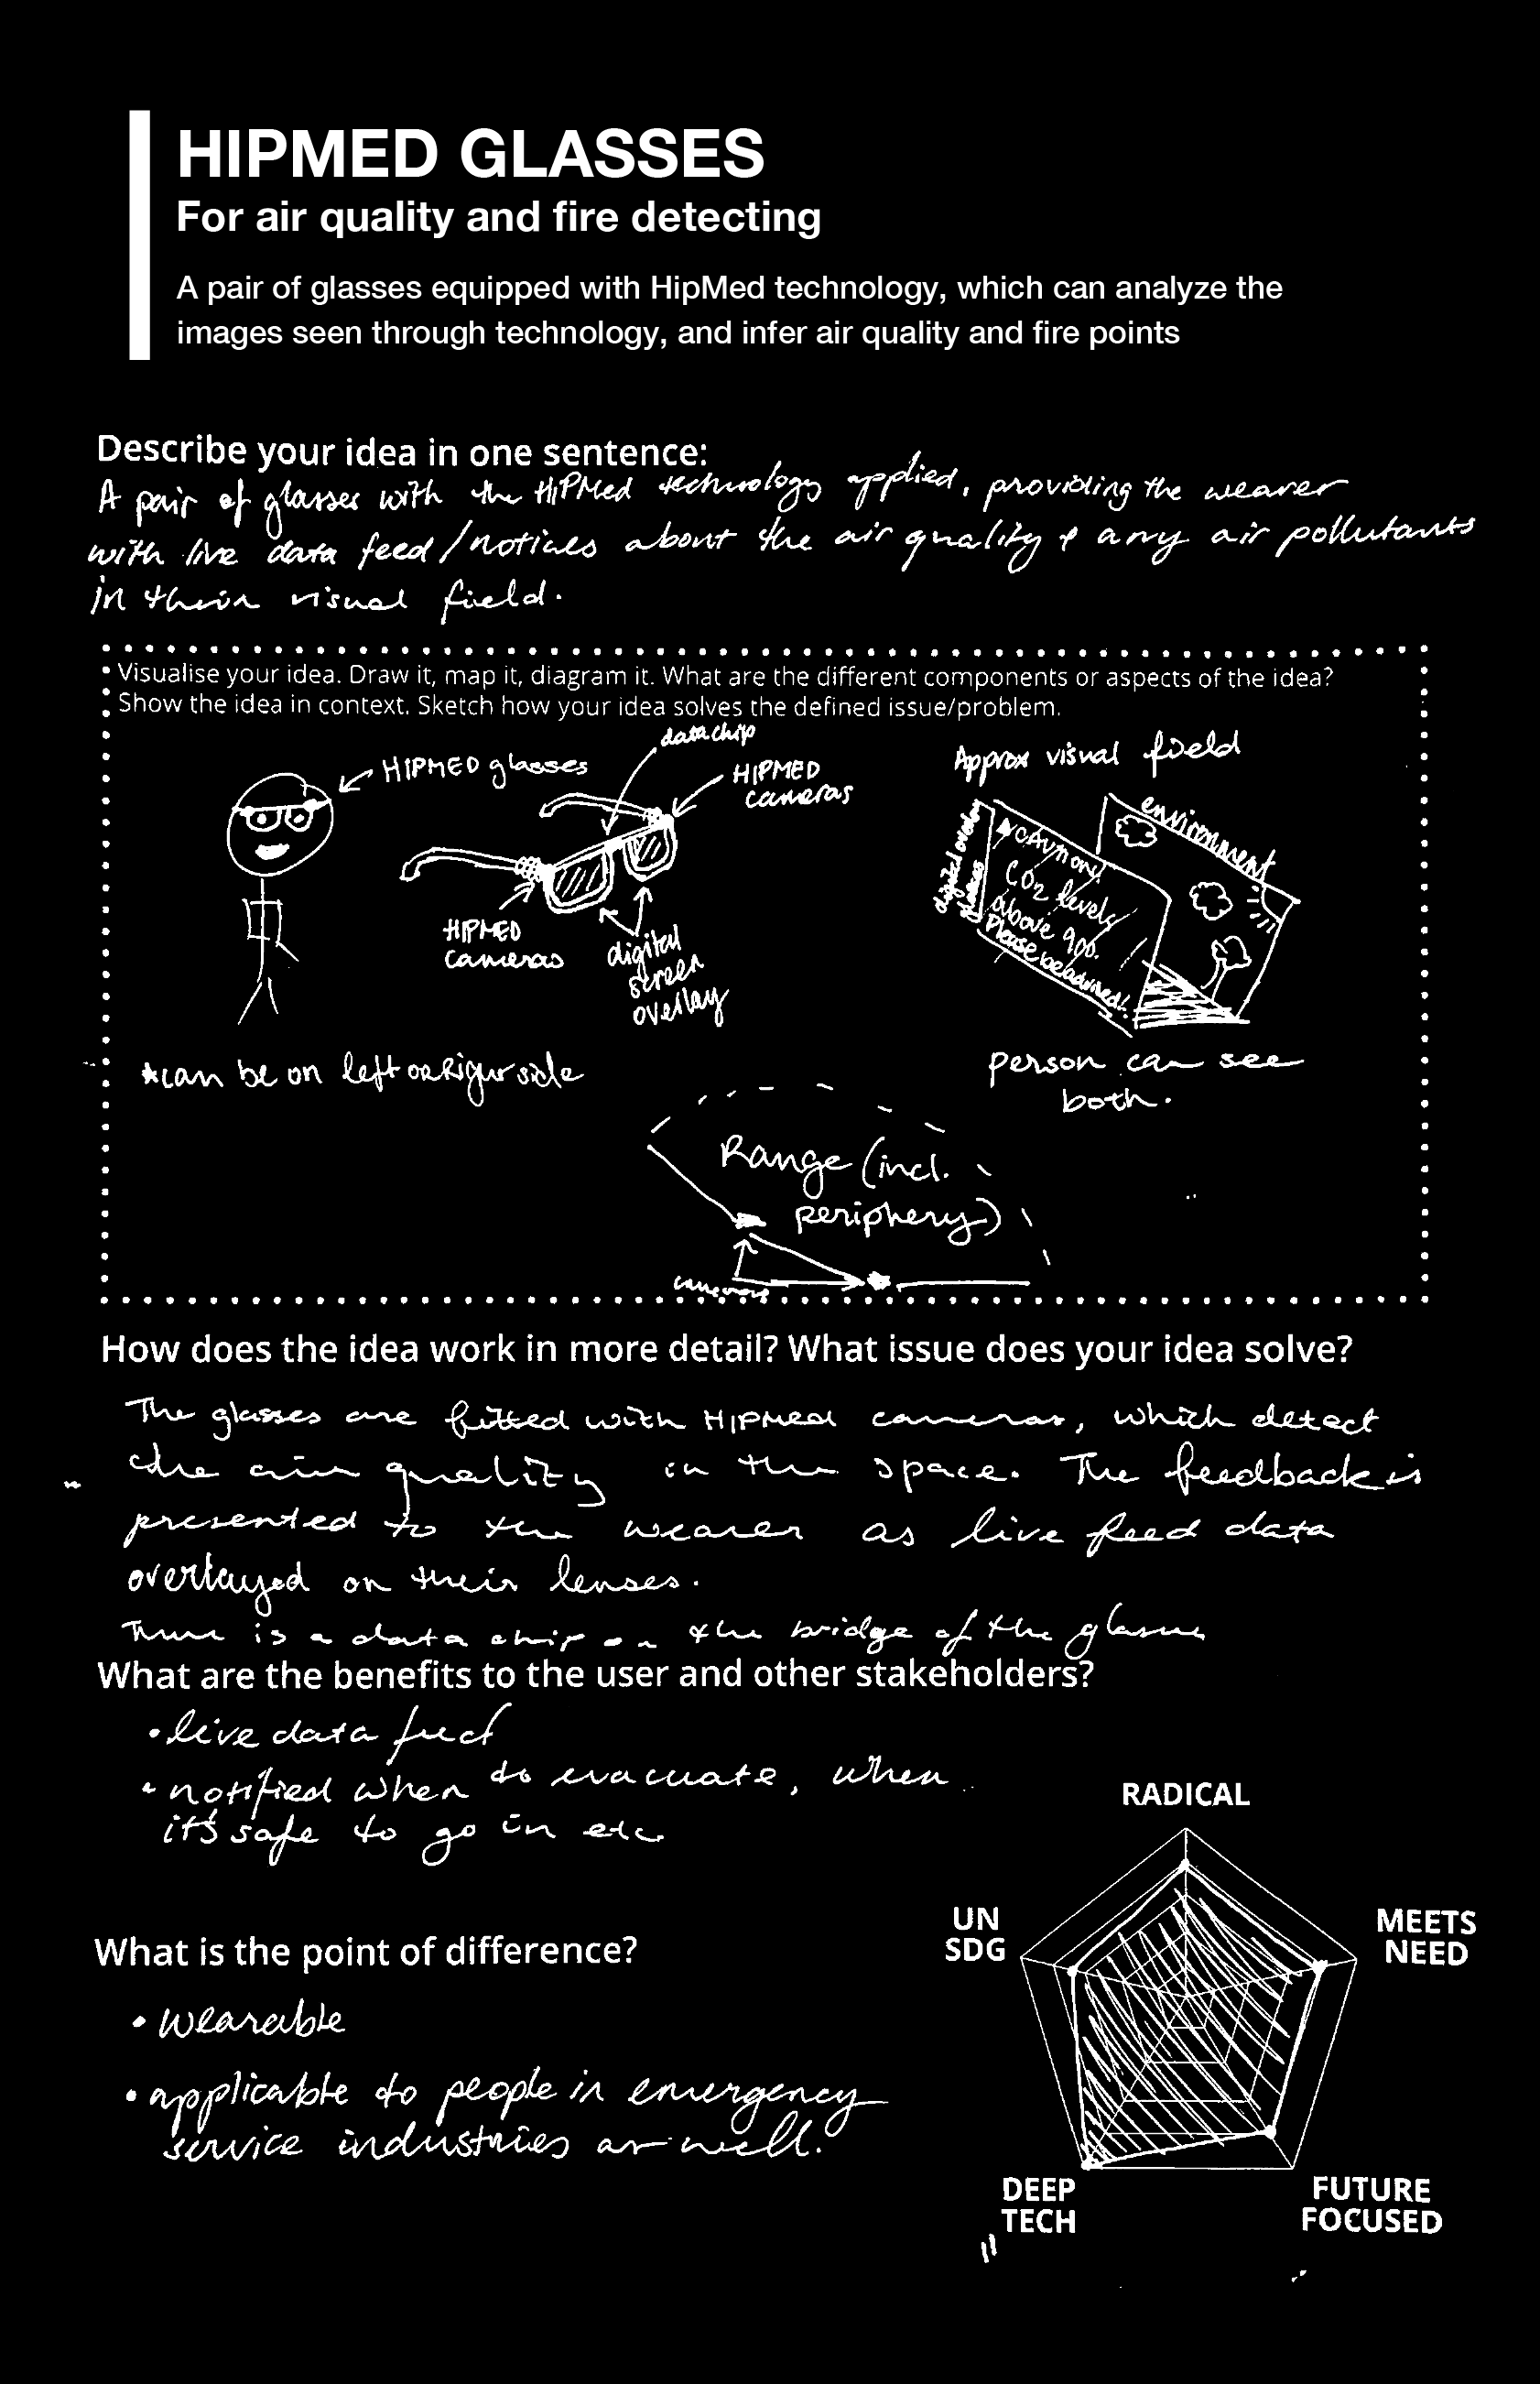 HIPMED GLASSES
For air quality and fire detecting
A pair of glasses equipped with HipMed technology, which can analyze the
images seen through technology, and infer air quality and fire points
Describe your idea in one sentence:
A pair of glasses with the HIPMed technology applied, providing the wearer
with live data feed/notices about the air quality & any air pollutants
in their visual field.
Visualise your idea. Draw it, map it, diagram it. What are the different components or aspects of the idea?
Show the idea in context. Sketch how your idea solves the defined issue/problem.
HIPMED glasses
data chip
HIPMED
cameras
HIPMED
cameras
digital
screen
overlay
*can be on left or Right side
Approx visual field
digital overlay
environment
CAUTION!
CO2 levels
above 900.
Please be advised!
person can see
both.
Range (incl.
periphery)
cameras
How does the idea work in more detail? What issue does your idea solve?
The glasses are fitted with HIPMed cameras, which detect
the air quality in the space. The feedback is
presented to the wearer as live feed data
overlayed on their lenses.
There is a data chip on the bridge of the glasses
What are the benefits to the user and other stakeholders?
• live data feed
• notified when to evacuate, when
it's safe to go in etc
What is the point of difference?
• wearable
• applicable to people in emergency
service industries as well.
RADICAL
UN
SDG
MEETS
NEED
DEEP
TECH
FUTURE
FOCUSED